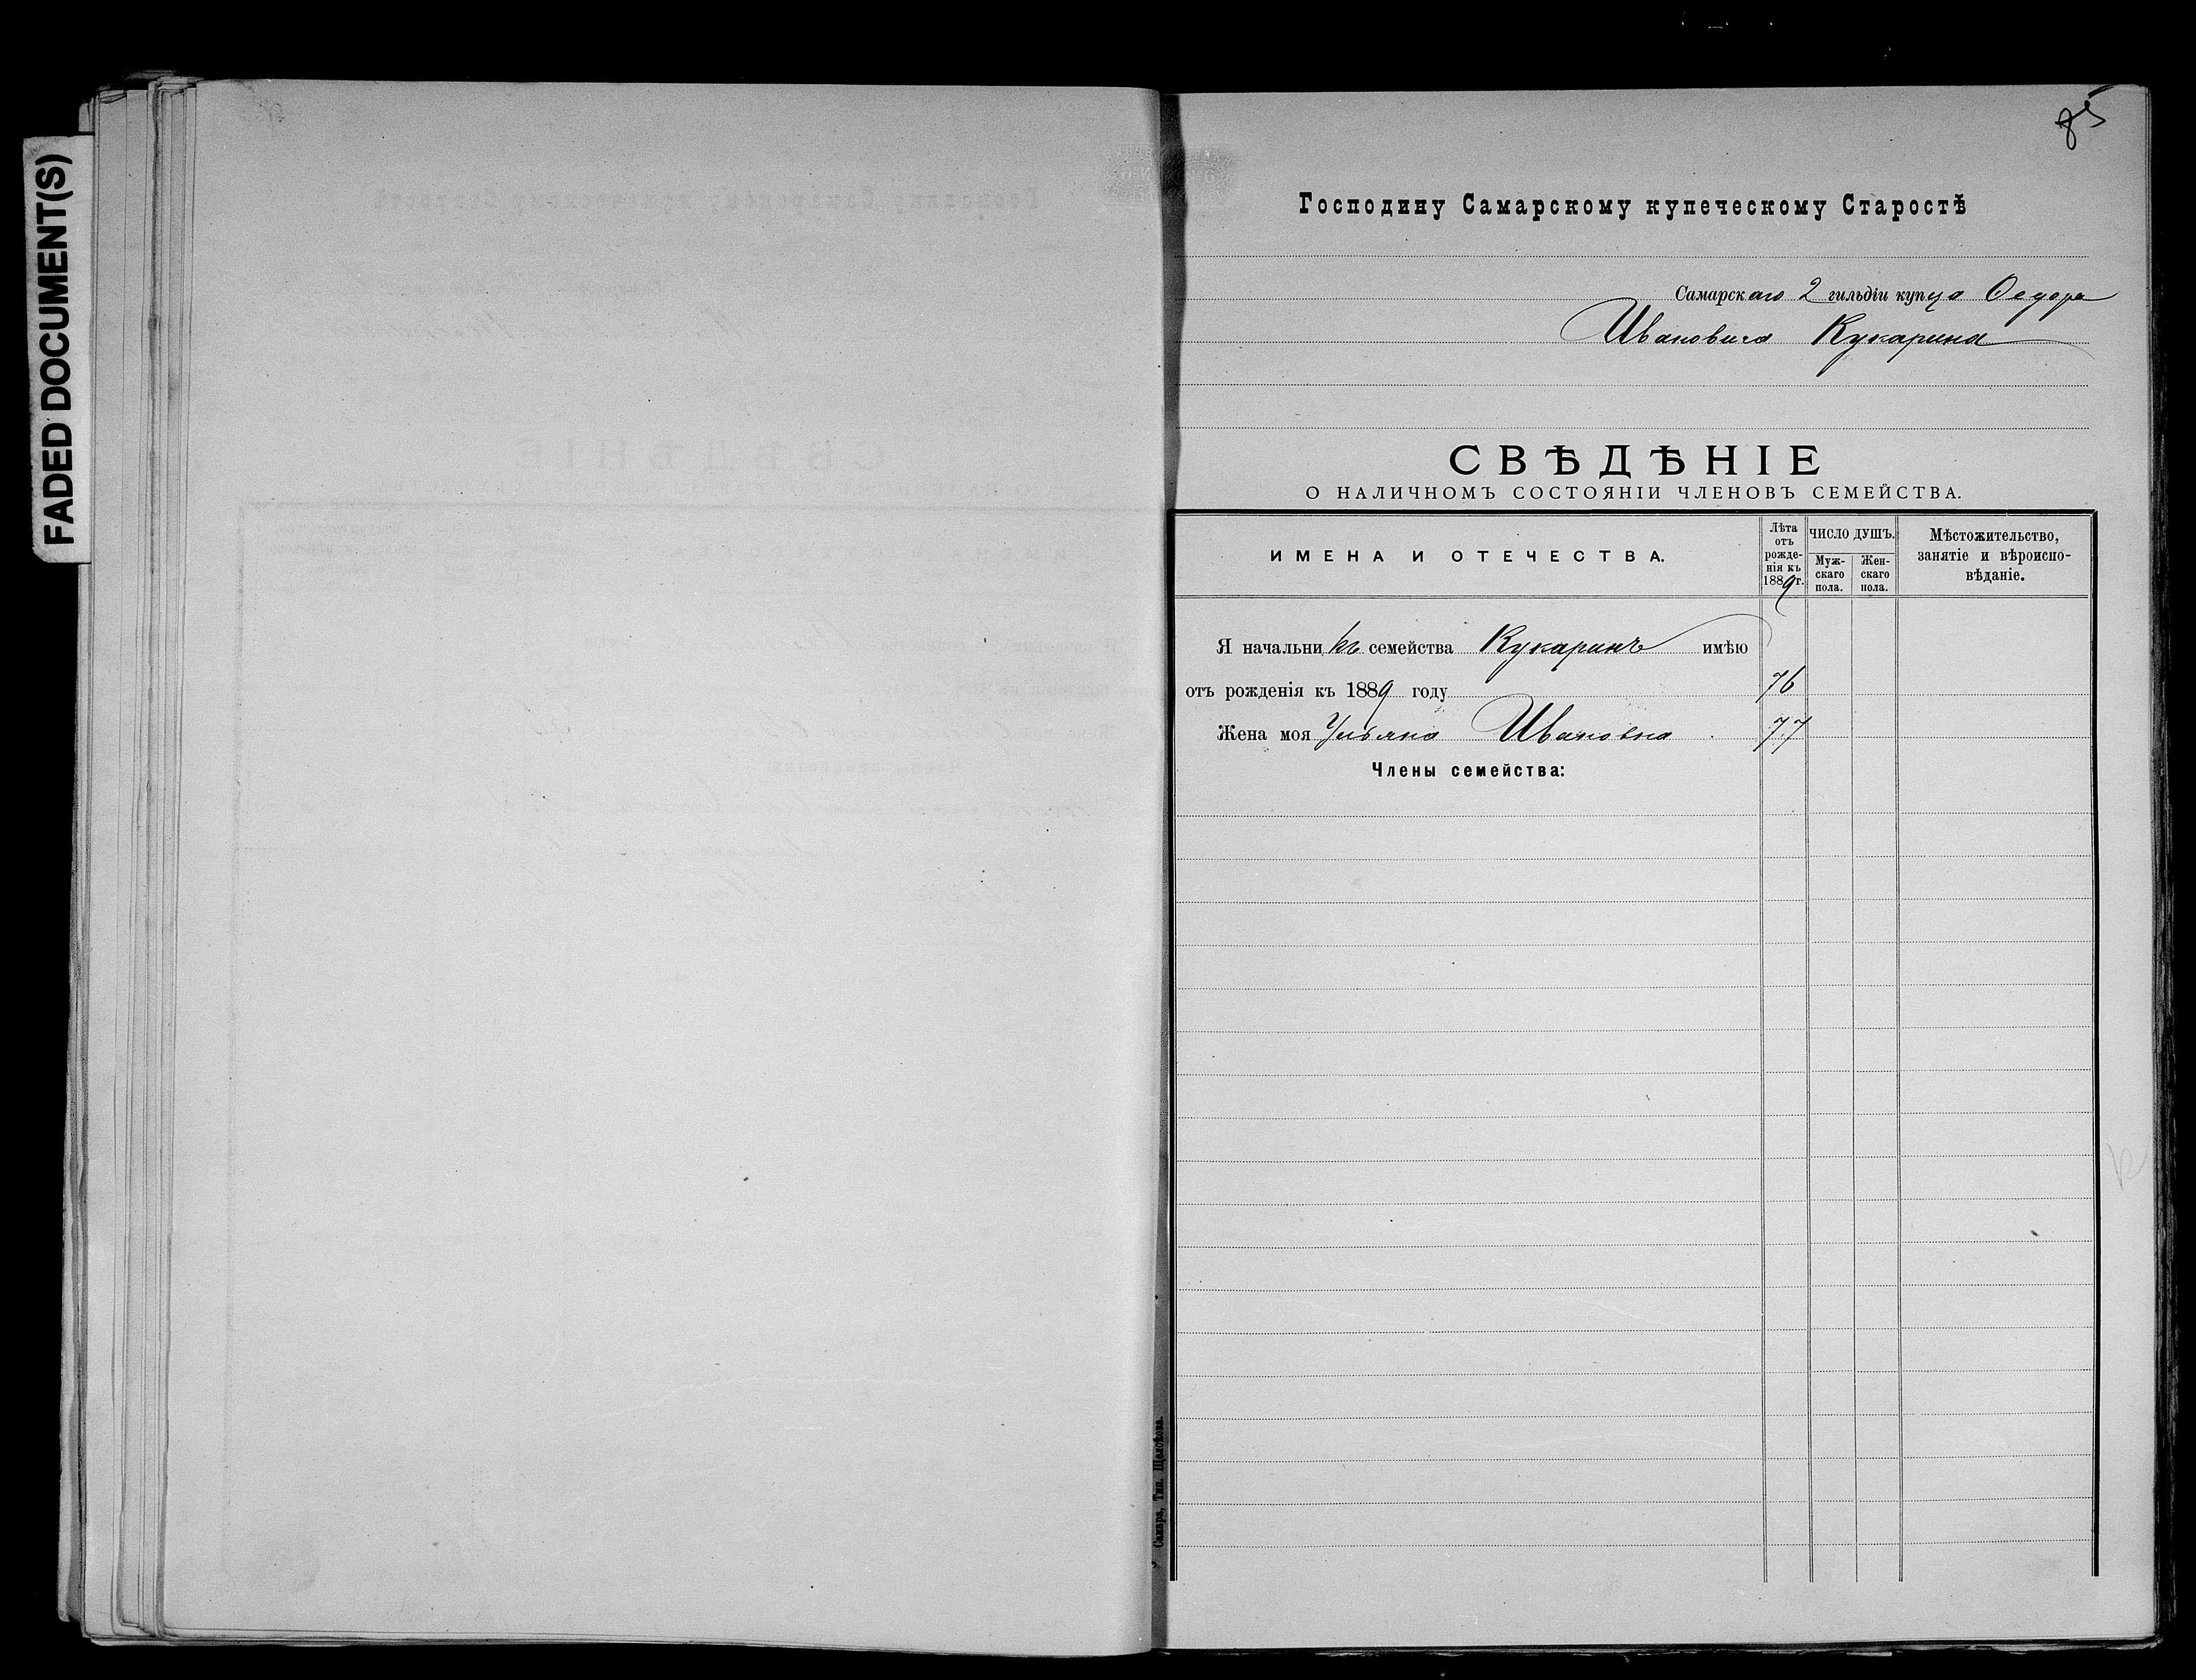 FADED DOCUMENT(S)
85
Господину Самарскому купеческому Старостѣ
Самарскаго 2 гильдіи купца Ѳедора
Ивановича Кукарина
СВѢДѢНІЕ
О НАЛИЧНОМЪ СОСТОЯНІИ ЧЛЕНОВЪ СЕМЕЙСТВА.
ИМЕНА И ОТЕЧЕСТВА.
Лѣта
отъ
рожде-
нія къ
1889 г.
ЧИСЛО ДУШЪ.
Муж-
скаго
пола.
Жен-
скаго
пола.
Мѣстожительство,
занятіе и вѣроиспо-
вѣданіе.
Я начальникъ семейства Кукаринъ имѣю
отъ рожденія къ 1889 году 76
Жена моя Ульяна Ивановна 77
Члены семейства:
Самара, Тип.